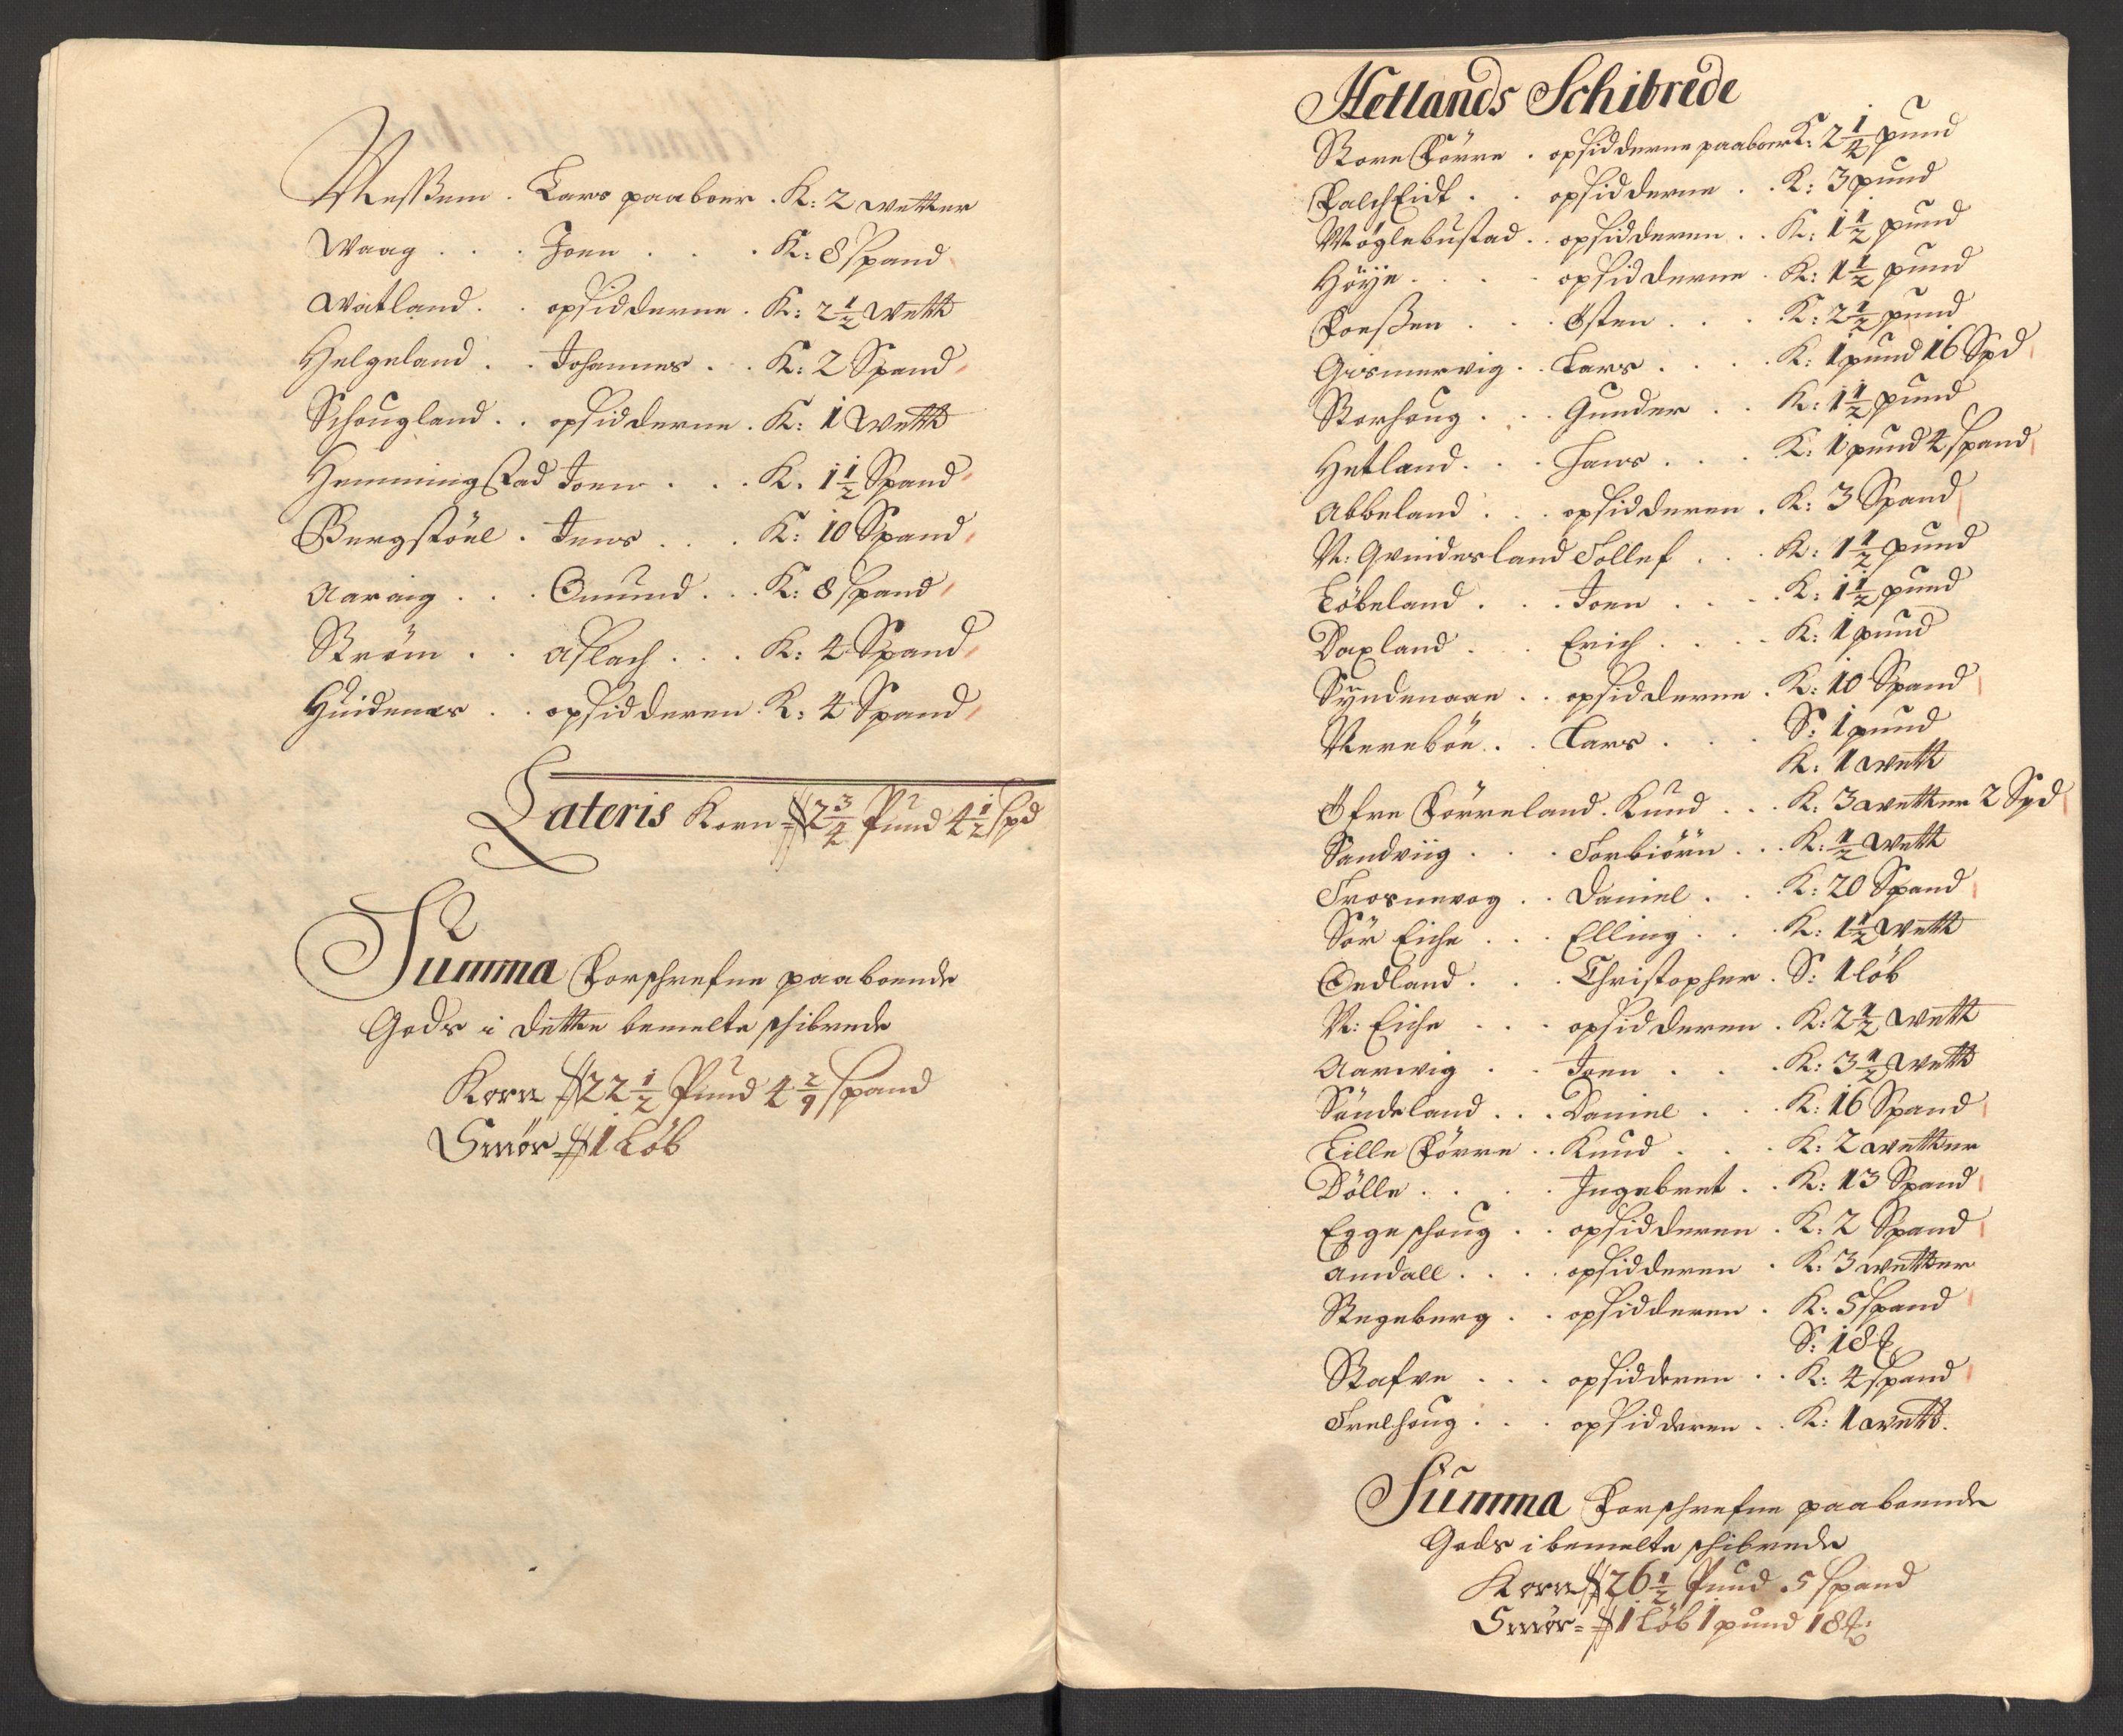 Meßem . Lars paaboer . K: 2 wetter
Waag . . . Joen . . . K: 8 spand
Watland . . opsidderne . K: 2 1/2 Wett
Helgeland . . Johannes . . K: 2 Spand
Schougland . . opsidderne . K: 1 Wett
Hemmingstad Joen . . . K. 1 1/2 Spand
Bergstöel . Jens . . . K: 10 Spand
Aaraig . . . Omund . . K: 8 spand
Ström . . Aslach . . . K: 4 Spand
Huidenes . . opsidderen K: 4 Spand
Lateris Korn 2 3/4 Pund 4 1/2 spd
Summa Forschrefne paaboende
Gods i dette bemelte schibrede
Korn 22 1/2 Pund 4 2/9 spand
Smör 1 Löb
Hetlands Schibrede
Store Förre . opsidderne paaboer K: 2 1/4 pund
FalchEidt . . opsidderne . . K: 3 pund
Möglebustad . . opsidderen . . K: 1 1/2 pund
Höye . . . . opsidderne . K: 1 1/2 pund
Foeßen . . . Östen . . . K: 2 1/2 pund
Gismervig . . Lars . . . . K: 1 pund 16 Spd
Storhoug . . . Gunder . . K: 1 1/2 pund
Hetland . . . Hans . . . K: 1 pund 4 spand
Abbeland . . . opsidderen . K: 3 Spand
N: Qvindesland Tollef . . . K: 1 1/2 pund
Löbeland . . . Joen . . . . K: 1 1/2 pund
Daxland . . . Erich . . . . K: 1 pund
Syndenaae . . opsidderne . K: 10 Spand
Rereböe . . Lars . . . S: 1 pund
K: 1 wett
Öfre Förreland . Knud . . . K: 3 wetter 2 Spd
Sandviig . . . Torbiörn . . . K: 1/2 Wett
Frosnevog . . Daniel . . . K: 20 Spand
Sör Eiche . . . Elling . . . K: 1 1/2 Wett
Oedland . . . Christopher . S: 1 löb
N: Eiche . . . opsidderen . K: 2 1/2 Wett
Aarwig . . . Joen . . . K: 3 1/2 Wett
Söndeland . . . Daniel . . . K: 16 Spand
Lille Förre . . Knud . . . K: 2 wetter
Dölle . . . . Ingebret . . K: 13 Spand
Eggeschoug . . opsidderen . K: 2 Spand
Amdall . . . . opsidderen . K: 3 wetter
Stegeberg . . opsidderen . K: 5 spand
S: 18 ℔
Stafve . . . opsidderen . . K: 4 spand
Trelhoug . . . opsidderen . . K: 1 wett.
Summa Forschrefne paaboende
Gods i bemelte schibrede
Korn 26 1/2 Pund 5 spand
Smör = 1 Löb 1 pund 18 ℔: